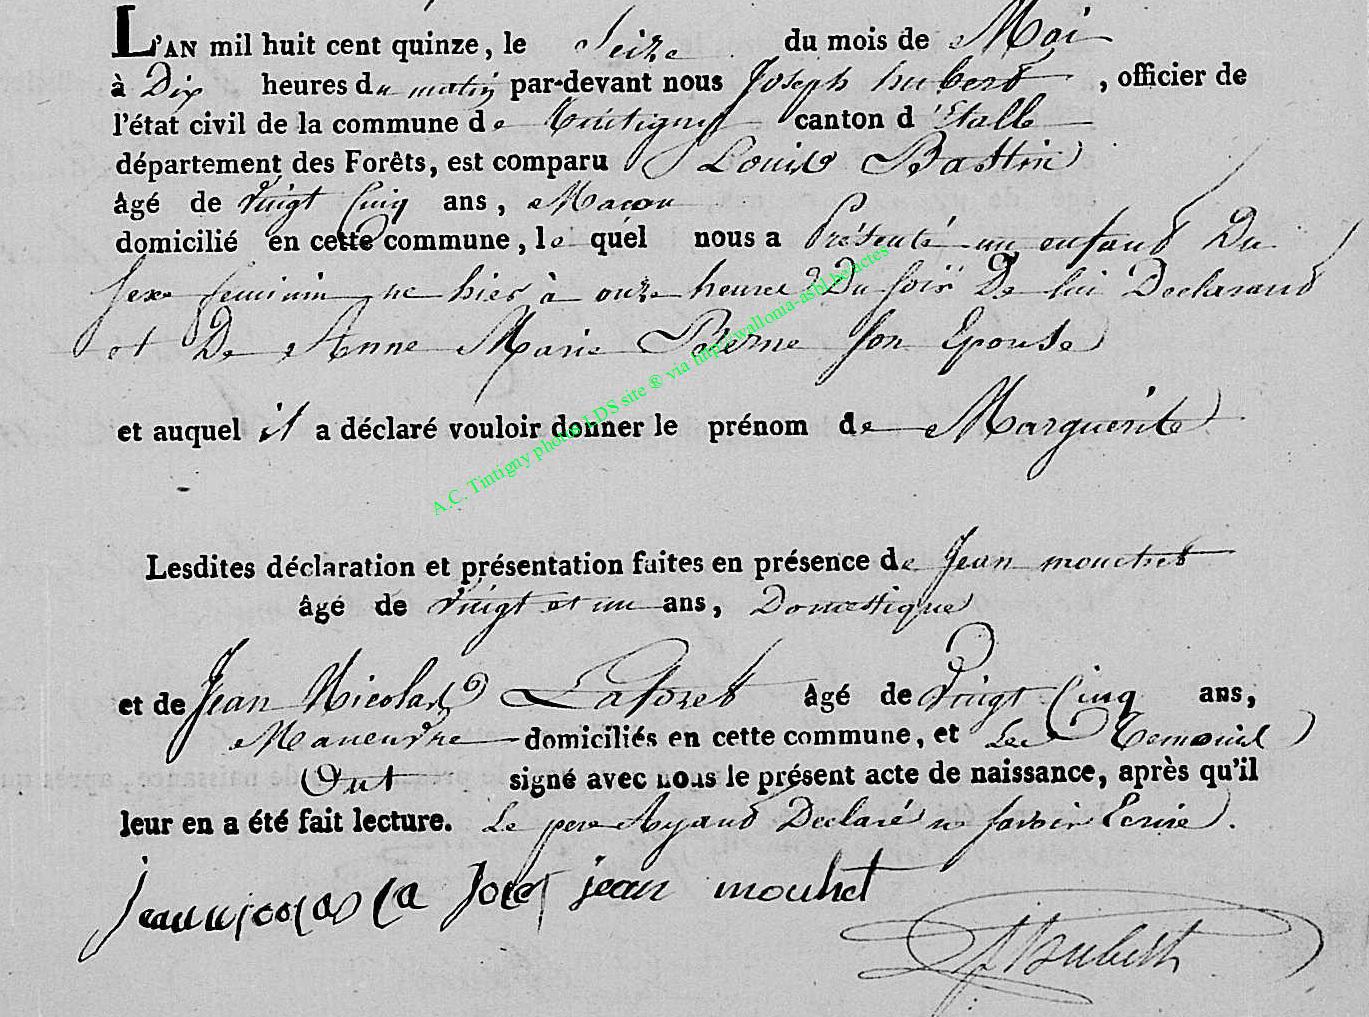 L'AN mil huit cent quinze, le Seize du mois de Mai
à Dix heures du matin par-devant nous Joseph hubert, officier de
l'état civil de la commune de Tintigny canton d'Etalle
département des Forêts, est comparu Louis Bastin
âgé de vingt Cinq ans, Macon
domicilié en cette commune, lequel nous a Présenté un enfant Du
sexe feminin ne hier à onze heures Du soir De lui Declarant
et De Anne Marie Pierne son Epouse
et auquel il a déclaré vouloir donner le prénom de Marguerite
Lesdites déclaration et présentation faites en présence de Jean mouchet
âgé de vingt et un ans, Domestique
et de Jean Nicolas Laforet âgé de vingt Cinq ans,
Maneuvre domiciliés en cette commune, et Les Temouins
Ont signé avec nous le présent acte de naissance, après qu'il
leur en a été fait lecture. Le pere Ayant Declaré ne savoir Ecrire.
jean mouhet
Hubert
A.C. Tintigny photos LDS site ® via http://wallonia-asbl.be/actes